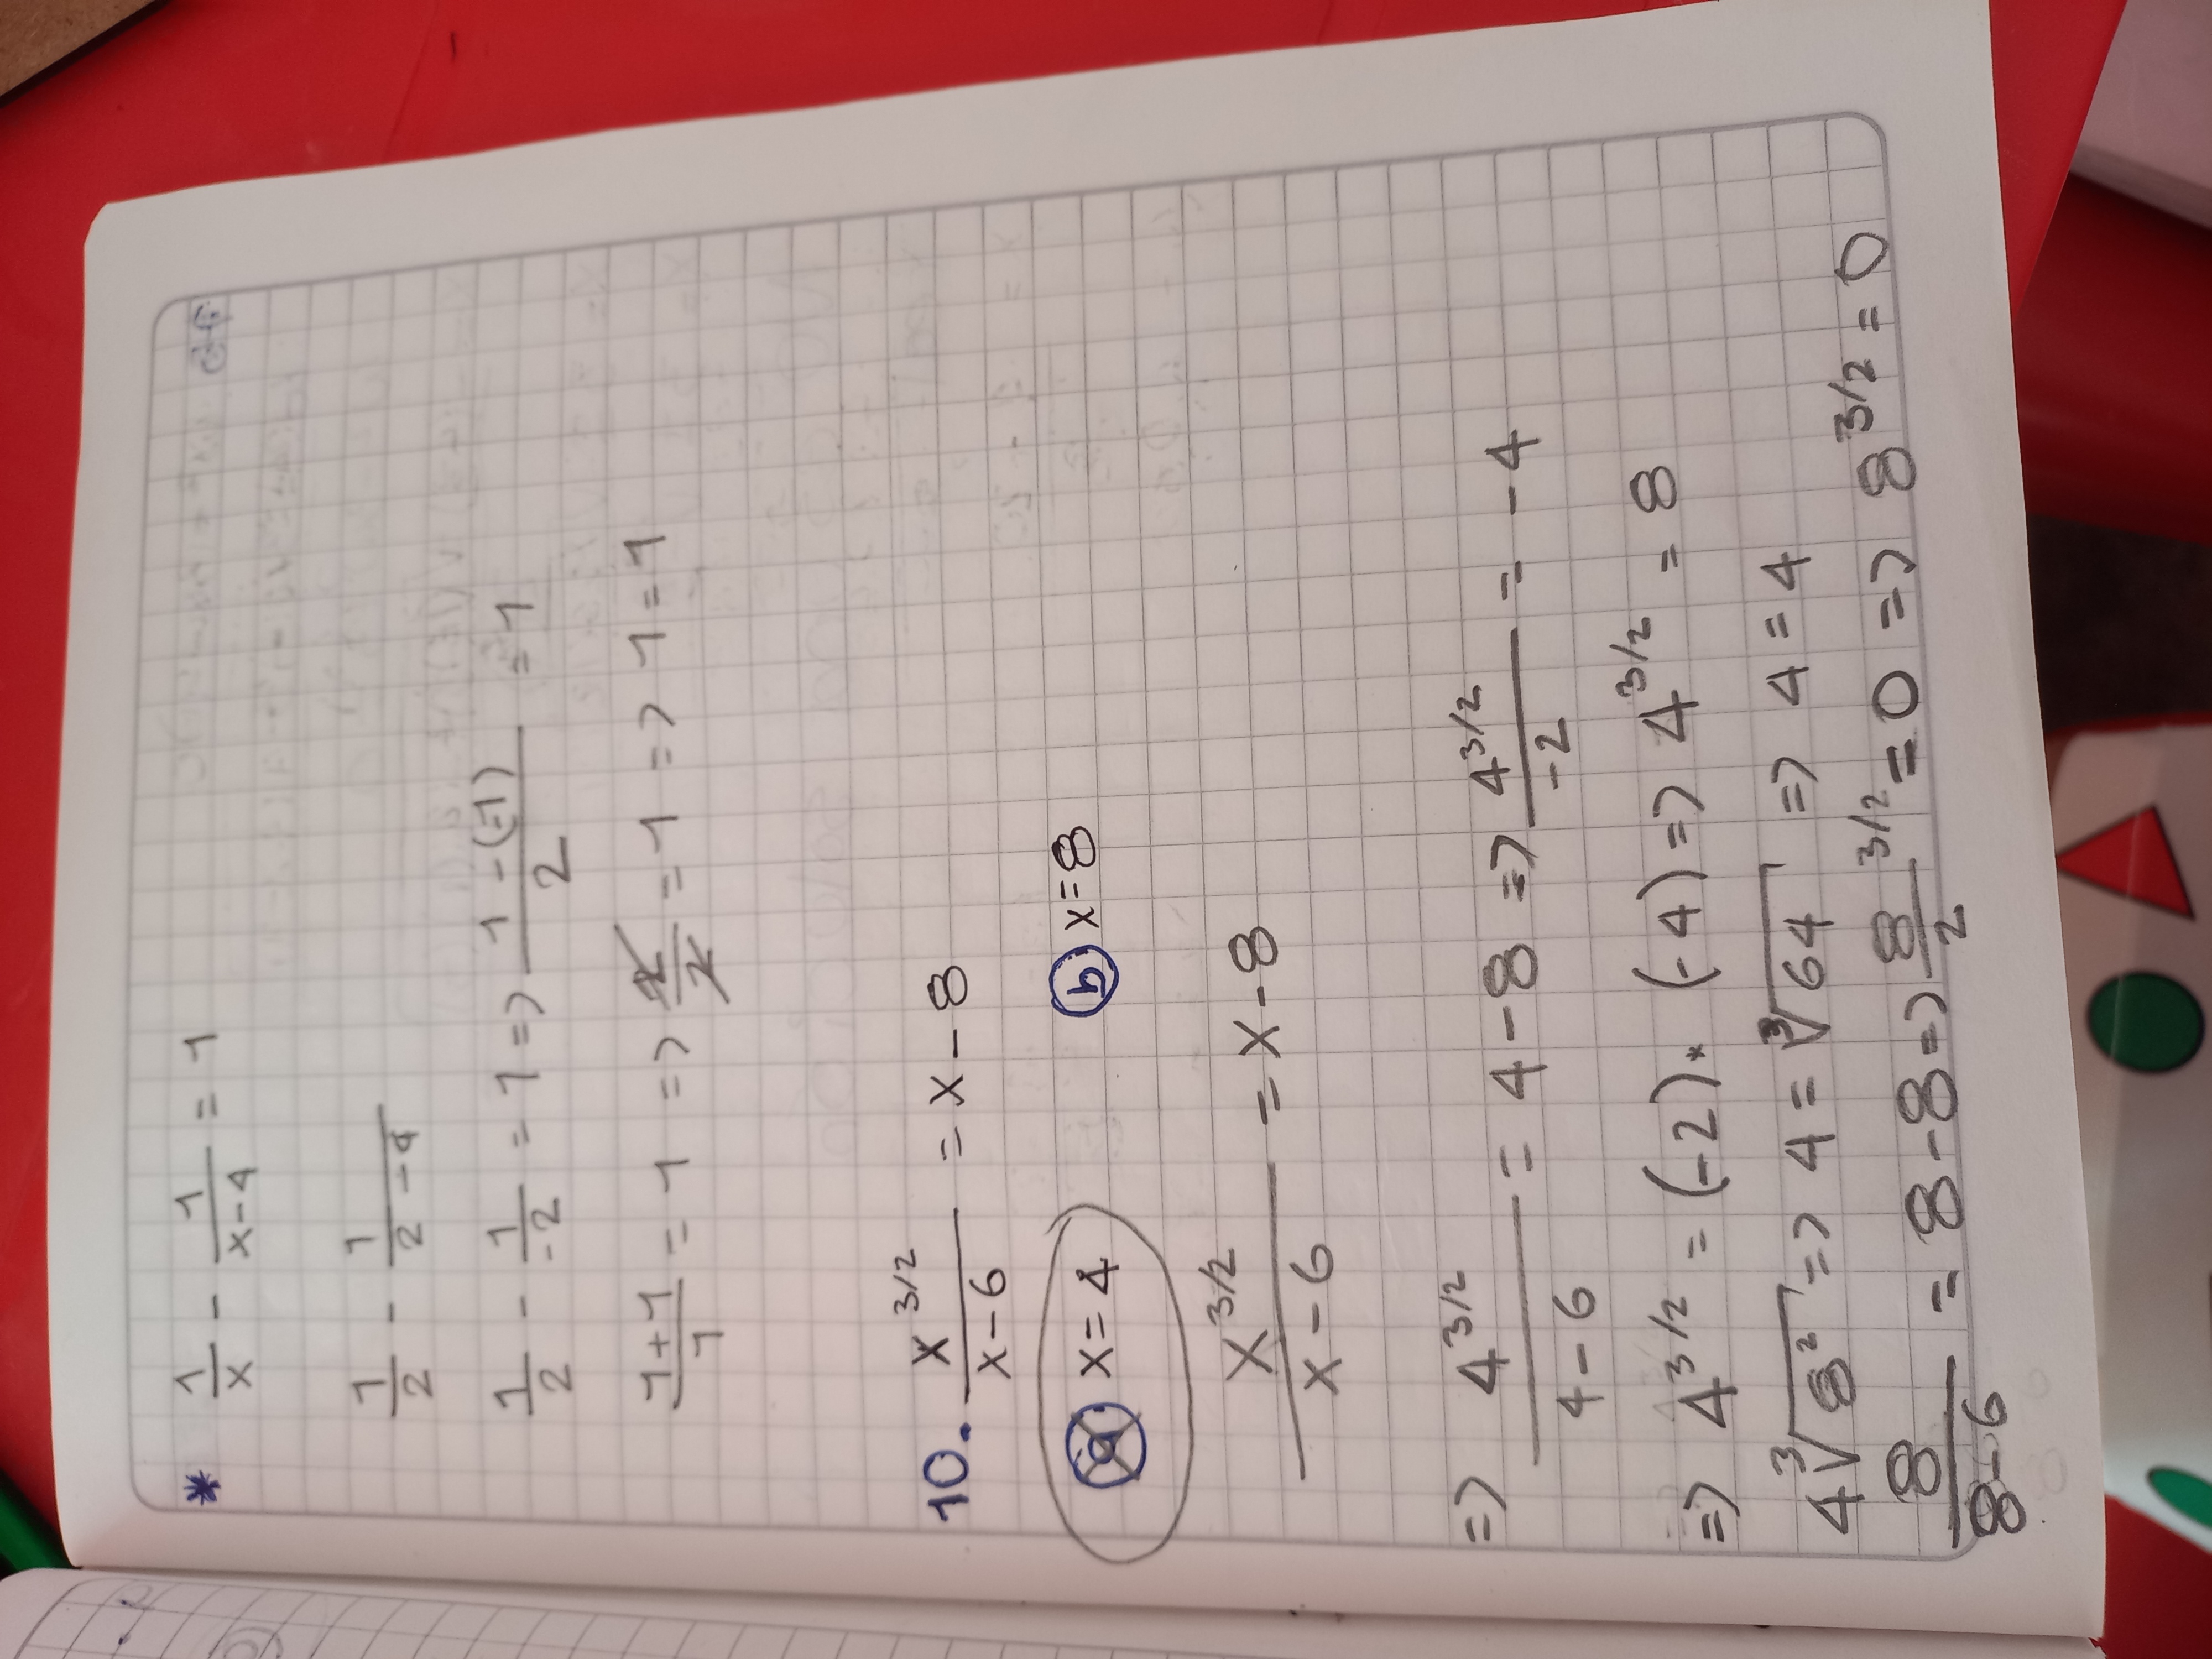 * 1/x - 1/(x-4) = 1
1/2 - 1/(2-4)
1/2 - 1/-2 = 1 => (1-(-1))/2 = 1
(1+1)/1 = 1 => 2/2 = 1 => 1 = 1
10. x^3/2/(x-6) = x-8
a x=4 b x=8
x^3/2/(x-6) = x-8
=> 4^3/2/(4-6) = 4-8 => 4^3/2/-2 = -4
=> 4^3/2 = (-2)*(-4) => 4^3/2 = 8
4 ∛8² => 4 = ∛64 => 4 = 4
8/(8-6) = 8-8 => 8/2 ^3/2 = 0 => 8^3/2 = 0